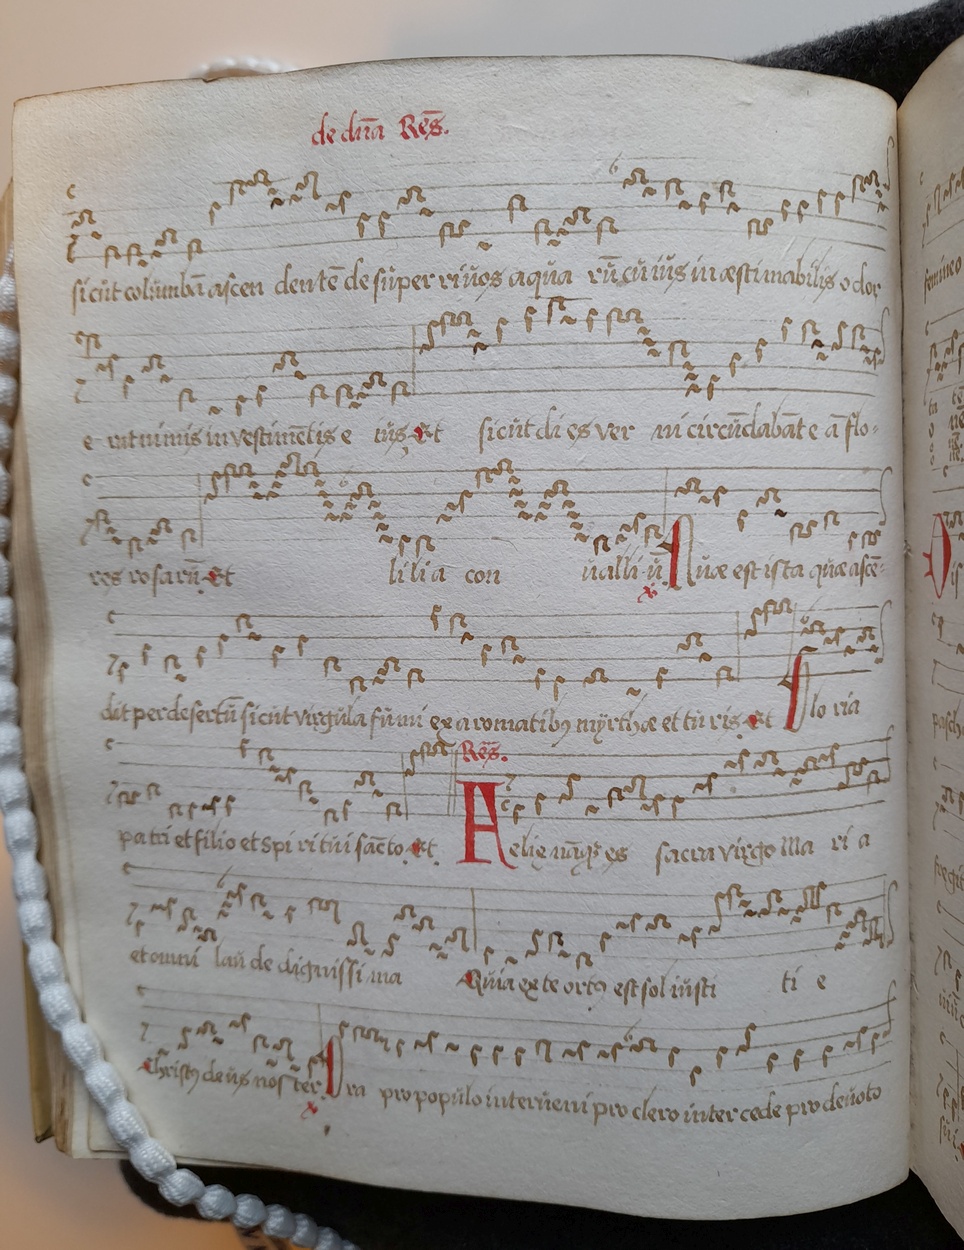 de dn̄a Res̄.
sicut columbā ascen dentē de super rivos aqua rū cu ius in æstimabilis o dor
e rat nimis in vestimētis e ius. Et sicut di es ver ni circūdabāt e ā flo-
res rosarū. Et lilia con ualli ū Quæ est ista quæ ascē-
dit per desertū sicut virgula fumi ex aromatibꝫ myrrhæ et tu ris. Et Glo ria
pa tri et filio et spi ri tui sācto. Et Res̄.
Felix es sacra virgo Ma ri a
et omni lau de dignissi ma Quia ex te ortꝰ est sol iusti ti e
Christꝰ deus nos ter. Ora pro populo interveni pro clero inter cede pro devoto